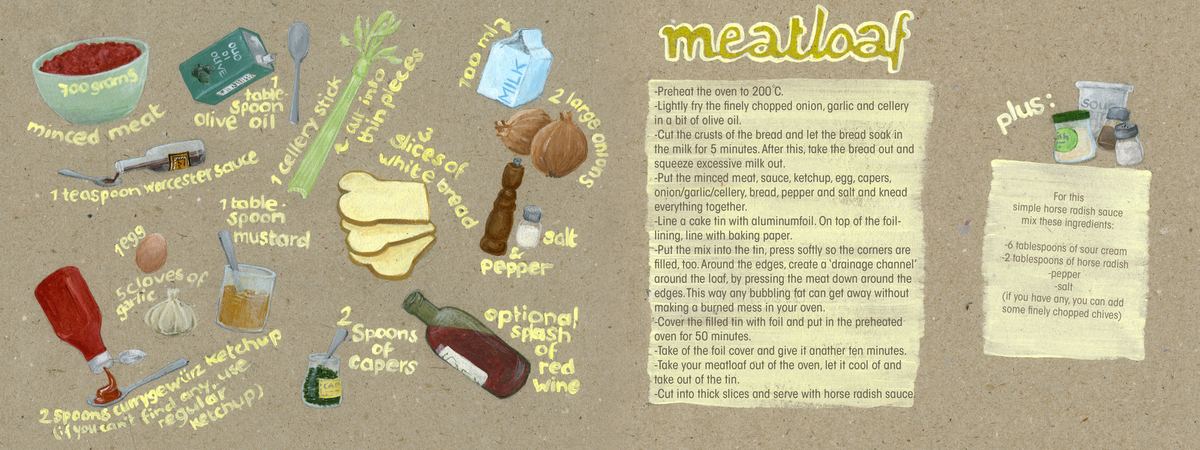 700 grams
minced meat
OLIVE
OLIO
1
table-
spoon
olive oil
1 cellery stick
cut into
thin pieces
100 ml
MILK
2 large onions
1 teaspoon worcester sauce
3
slices of
white bread
salt
&
pepper
1 table-
spoon
mustard
1 egg
5 cloves of
garlic
2 spoons currygewürz ketchup
(if you can't find any, use
regular
ketchup)
2
Spoons
of
capers
optional
splash
of
red
wine
meatloaf
-Preheat the oven to 200°C.
-Lightly fry the finely chopped onion, garlic and cellery
in a bit of olive oil.
-Cut the crusts of the bread and let the bread soak in
the milk for 5 minutes. After this, take the bread out and
squeeze excessive milk out.
-Put the minced meat, sauce, ketchup, egg, capers,
onion/garlic/cellery, bread, pepper and salt and knead
everything together.
-Line a cake tin with aluminumfoil. On top of the foil-
lining, line with baking paper.
-Put the mix into the tin, press softly so the corners are
filled, too. Around the edges, create a 'drainage channel'
around the loaf, by pressing the meat down around the
edges. This way any bubbling fat can get away without
making a burned mess in your oven.
-Cover the filled tin with foil and put in the preheated
oven for 50 minutes.
-Take of the foil cover and give it another ten minutes.
-Take your meatloaf out of the oven, let it cool of and
take out of the tin.
-Cut into thick slices and serve with horse radish sauce
plus:
SOUR
For this
simple horse radish sauce
mix these ingredients:
-6 tablespoons of sour cream
-2 tablespoons of horse radish
-pepper
-salt
(if you have any, you can add
some finely chopped chives)